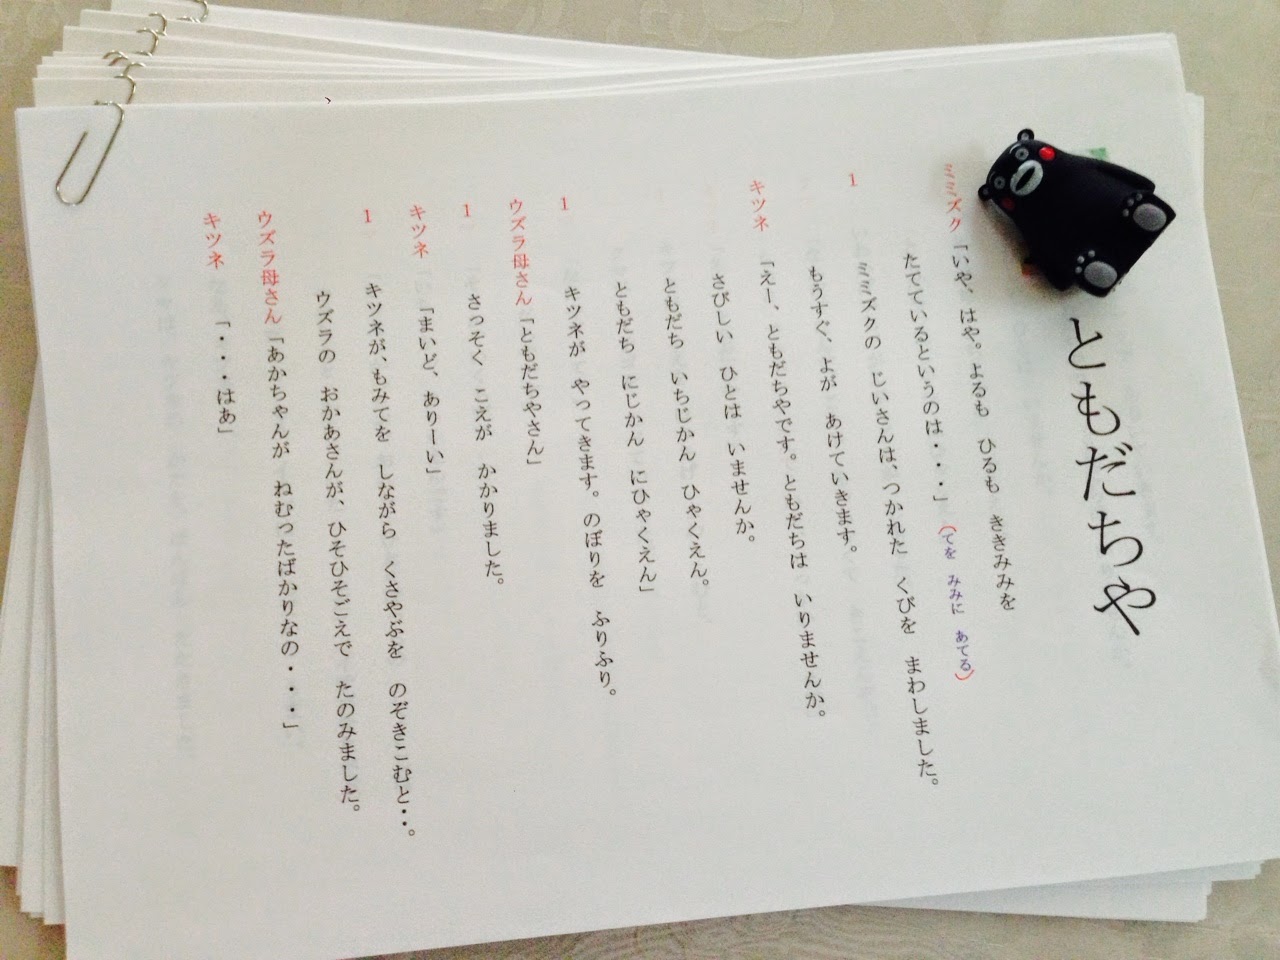 ともだちや
ミミズク「いや、はや。よるも　ひるも　ききみみを
たてているというのは・・・」（てを　みみに　あてる）
1　ミミズクの　じいさんは、つかれた　くびを　まわしました。
もうすぐ、よが　あけていきます。
キツネ「えー、ともだちやです。ともだちは　いりませんか。
さびしい　ひとは　いませんか。
ともだち　いちじかん　ひゃくえん。
ともだち　にじかん　にひゃくえん」
1　キツネが　やってきます。のぼりを　ふりふり。
ウズラ母さん「ともだちやさん」
1　さっそく　こえが　かかりました。
キツネ「まいど、ありーい」
1　キツネが、もみてを　しながら　くさやぶを　のぞきこむと・・。
ウズラの　おかあさんが、ひそひそごえで　たのみました。
ウズラ母さん「あかちゃんが　ねむったばかりなの・・・」
キツネ「・・・はあ」